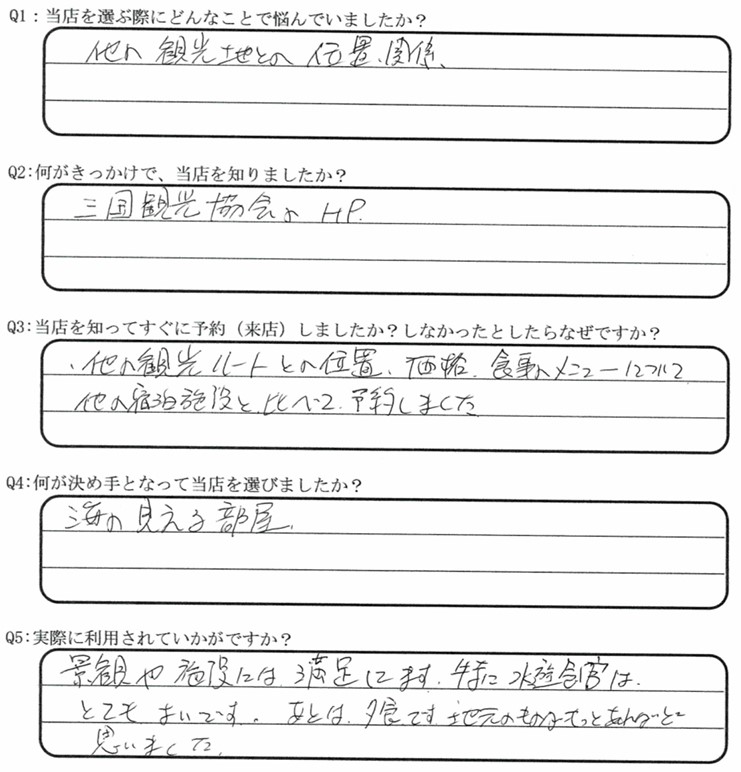 Q1：当店を選ぶ際にどんなことで悩んでいましたか？
他の観光地との位置、関係、
Q2：何がきっかけで、当店を知りましたか？
三国観光協会の HP.
Q3：当店を知ってすぐに予約（来店）しましたか？しなかったとしたらなぜですか？
・他の観光ルートとの位置、価格、食事のメニューについて
他の宿泊施設と比べて、予約しました
Q4：何が決め手となって当店を選びましたか？
海の見える部屋、
Q5：実際に利用されていかがですか？
景観や施設には満足してます。特に
とても です。あとは、夕食です 地元のものは もっと
思いました。